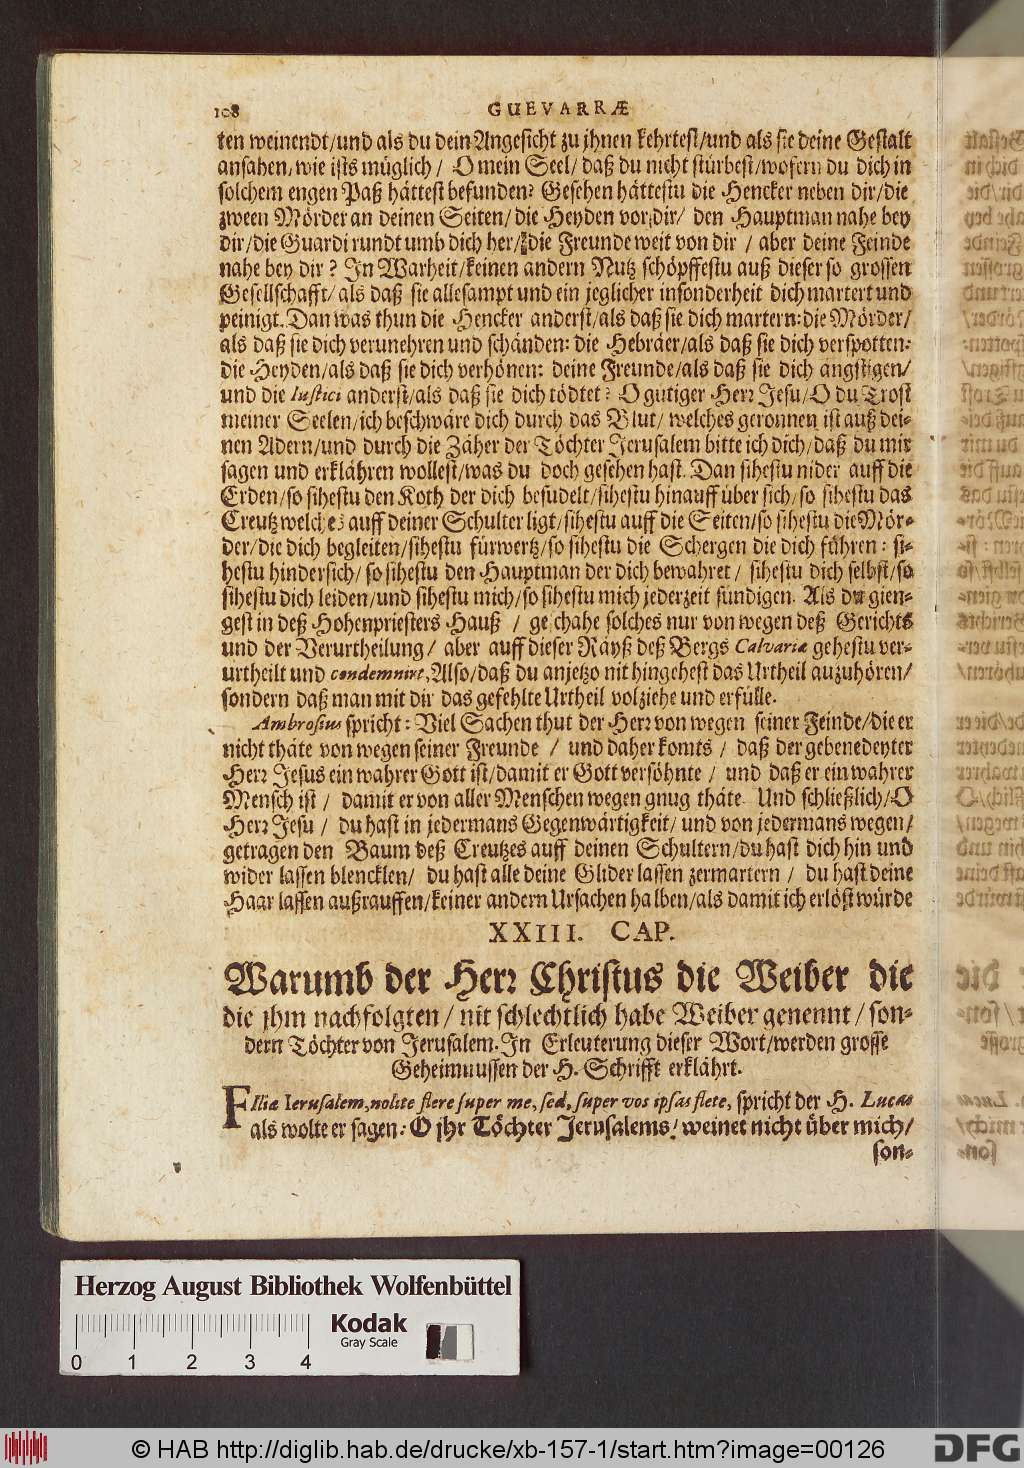 108 GUEVARRÆ
ten weinendt/und als du dein Angesicht zu jhnen kehrtest/und als sie deine Gestalt
ansahen, wie ists müglich / O mein Seel/ daß du nicht stürbest/wofern du dich in
solchem engen Paß hättest befunden? Gesehen hättestu die Hencker neben dir/die
zween Mörder an deinen Seiten/die Heyden vor dir/ den Hauptman nahe bey
dir/die Guardi rundt umb dich her/die Freunde weit von dir / aber deine Feinde
nahe bey dir? In Warheit/keinen andern Nutz schöpffestu auß dieser so grossen
Gesellschafft/als daß sie allesampt und ein jeglicher insonderheit dich martert und
peinigt. Dan was thun die Hencker anderst/als daß sie dich martern: die Mörder/
als daß sie dich verunehren und schänden: die Hebräer/als daß sie dich verspotten:
die Heyden/als daß sie dich verhönen: deine Freunde/als daß sie dich ängstigen/
und die Iustici anderst/als daß sie dich tödtet? O gutiger Herr Jesu/O du Trost
meiner Seelen/ich beschwäre dich durch das Blut/ welches geronnen ist auß dei-
nen Adern/und durch die Zäher der Töchter Jerusalem bitte ich dich/daß du mir
sagen und erklähren wollest/was du doch gesehen hast. Dan sihestu nider auff die
Erden/so sihestu den Koth der dich besudelt/sihestu hinauff über sich/so sihestu das
Creutz welches auff deiner Schulter ligt/sihestu auff die Seiten/so sihestu die Mör-
der/die dich begleiten/sihestu fürwertz/so sihestu die Schergen die dich führen: si-
hestu hindersich/so sihestu den Hauptman der dich bewahret/ sihestu dich selbst/so
sihestu dich leiden/und sihestu mich/so sihestu mich jederzeit sündigen. Als du gien-
gest in deß Hohenpriesters Hauß / geschahe solches nur von wegen deß Gerichts
und der Verurtheilung/ aber auff dieser Räyß deß Bergs Calvariæ gehestu ver-
urtheilt und condemnirt, Also/daß du anjetzo nit hingehest das Urtheil auzuhören/
sondern daß man mit dir das gefehlte Urtheil volziehe und erfülle.
Ambrosius spricht: Viel Sachen thut der Herr von wegen seiner Feinde/die er
nicht thäte von wegen seiner Freunde / und daher komts / daß der gebenedeyter
Herr Jesus ein wahrer Gott ist/damit er Gott versöhnte / und daß er ein wahrer
Mensch ist / damit er von aller Menschen wegen gnug thäte. Und schließlich/O
Herr Jesu / du hast in jedermans Gegenwärtigkeit/ und von jedermans wegen/
getragen den Baum deß Creutzes auff deinen Schultern/du hast dich hin und
wider lassen blencklen/ du hast alle deine Glider lassen zermartern / du hast deine
Haar lassen außrauffen/keiner andern Ursachen halben/als damit ich erlöst würde
XXIII. CAP.
Warumb der Herr Christus die Weiber die
die jhm nachfolgten/ nit schlechtlich habe Weiber genennt/ son-
dern Töchter von Jerusalem. In Erleuterung dieser Wort/werden grosse
Geheimnussen der H. Schrifft erklährt.
Filiæ Ierusalem, nolite flere super me, sed, super vos ipsas flete, spricht der H. Lucas
als wolte er sagen: O jhr Töchter Jerusalems/ weinet nicht über mich/
son-
Herzog August Bibliothek Wolfenbüttel
Kodak
Gray Scale
0 1 2 3 4
© HAB http://diglib.hab.de/drucke/xb-157-1/start.htm?image=00126
DFG